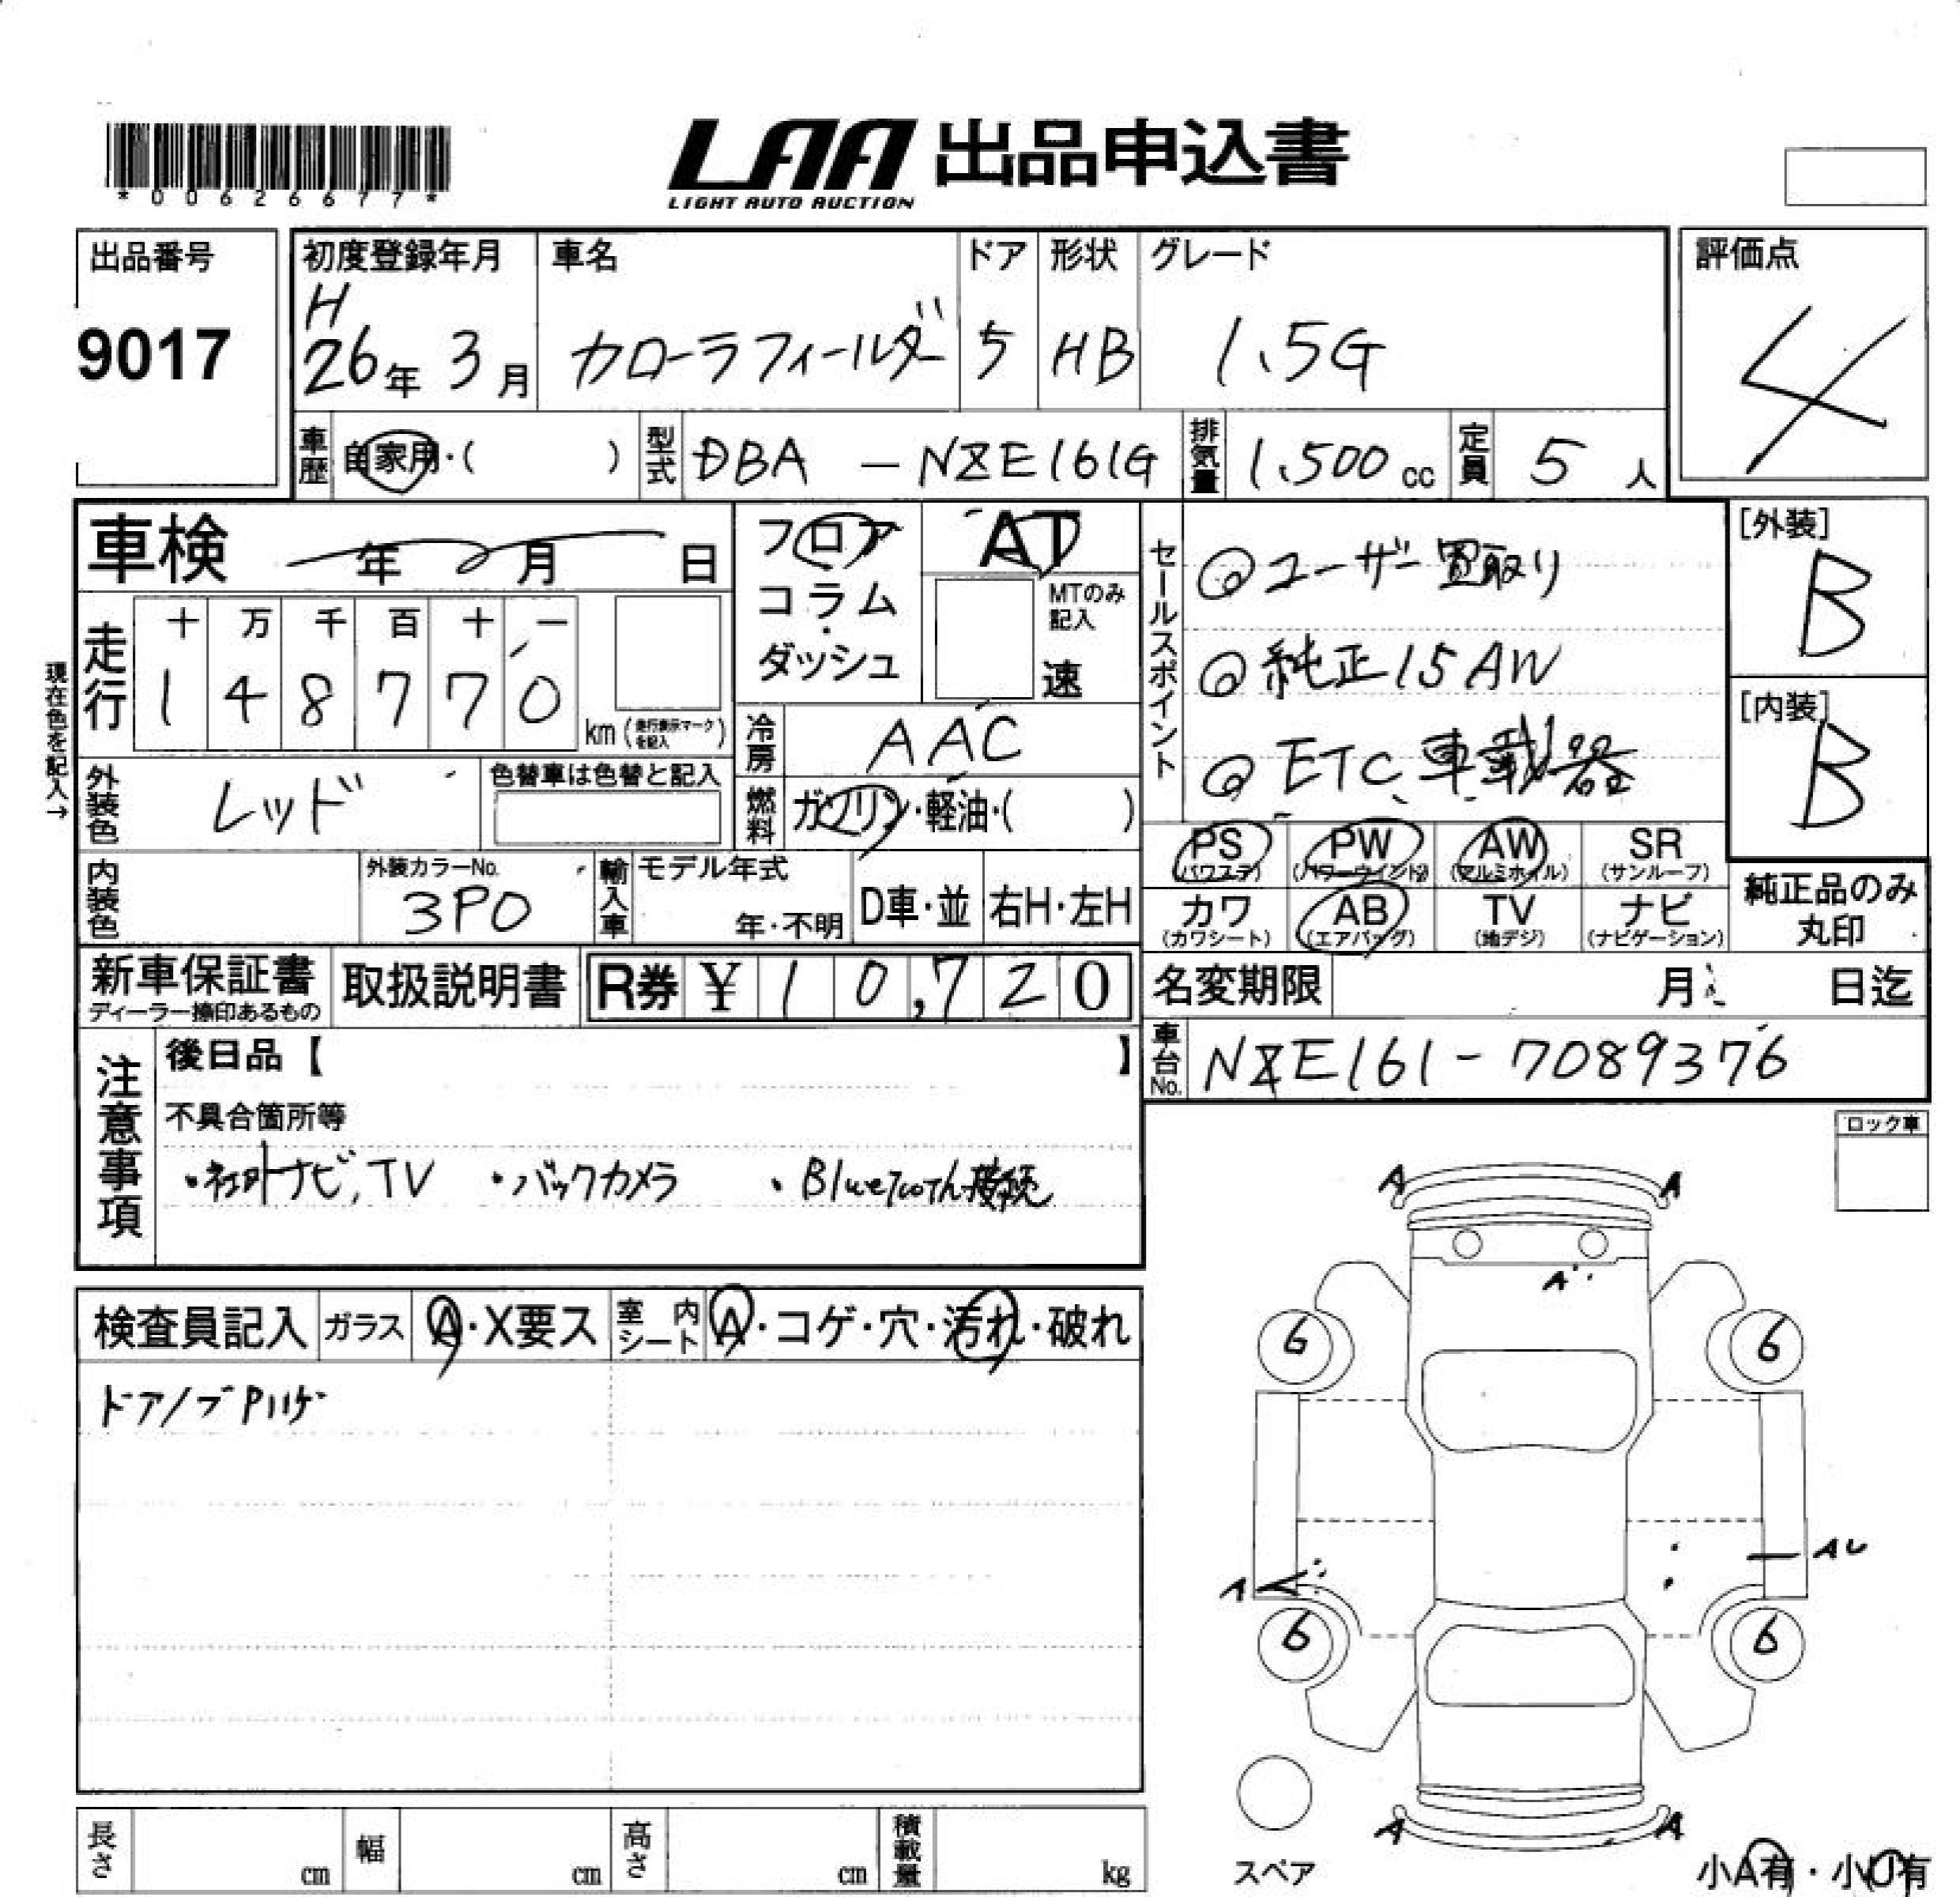 *00626677*
LAA 出品申込書
LIGHT AUTO AUCTION
出品番号
9017
初度登録年月
H
26年 3月
車名
カローラフィールダー
ドア
5
形状
HB
グレード
1.5G
評価点
4
車歴 自家用・( )
型式 DBA - NZE161G
排気量 1,500 cc
定員 5 人
車検 年 月 日
フロア・コラム・ダッシュ
AT
MTのみ記入
速
セールスポイント
◎ユーザー買取り
◎純正15AW
◎ETC車載器
[外装]
B
[内装]
B
現在色を記入→
走行
十 万 千 百 十 一
1 4 8 7 7 0
km (走行表示マークを記入)
冷房 AAC
外装色 レッド
色替車は色替と記入
燃料 ガソリン・軽油・( )
PS (パワステ)
PW (パワーウインド)
AW (アルミホイル)
SR (サンルーフ)
内装色
外装カラーNo.
3P0
輸入車
モデル年式
年・不明
D車・並
右H・左H
カワ (カワシート)
AB (エアバッグ)
TV (地デジ)
ナビ (ナビゲーション)
純正品のみ丸印
新車保証書
ディーラー捺印あるもの
取扱説明書
R券 ¥ 10,720
名変期限 月 日迄
車台No. NZE161-7089376
注意事項
後日品【 】
不具合箇所等
・社外ナビ,TV ・バックカメラ ・Bluetooth接続
ロック車
検査員記入
ガラス A・X要ス
室内シート A・コゲ・穴・汚れ・破れ
ドアノブPハゲ
A A
A
6 6
A AU
6 6
A A
スペア
小A有・小U有
長さ cm
幅 cm
高さ cm
積載量 kg